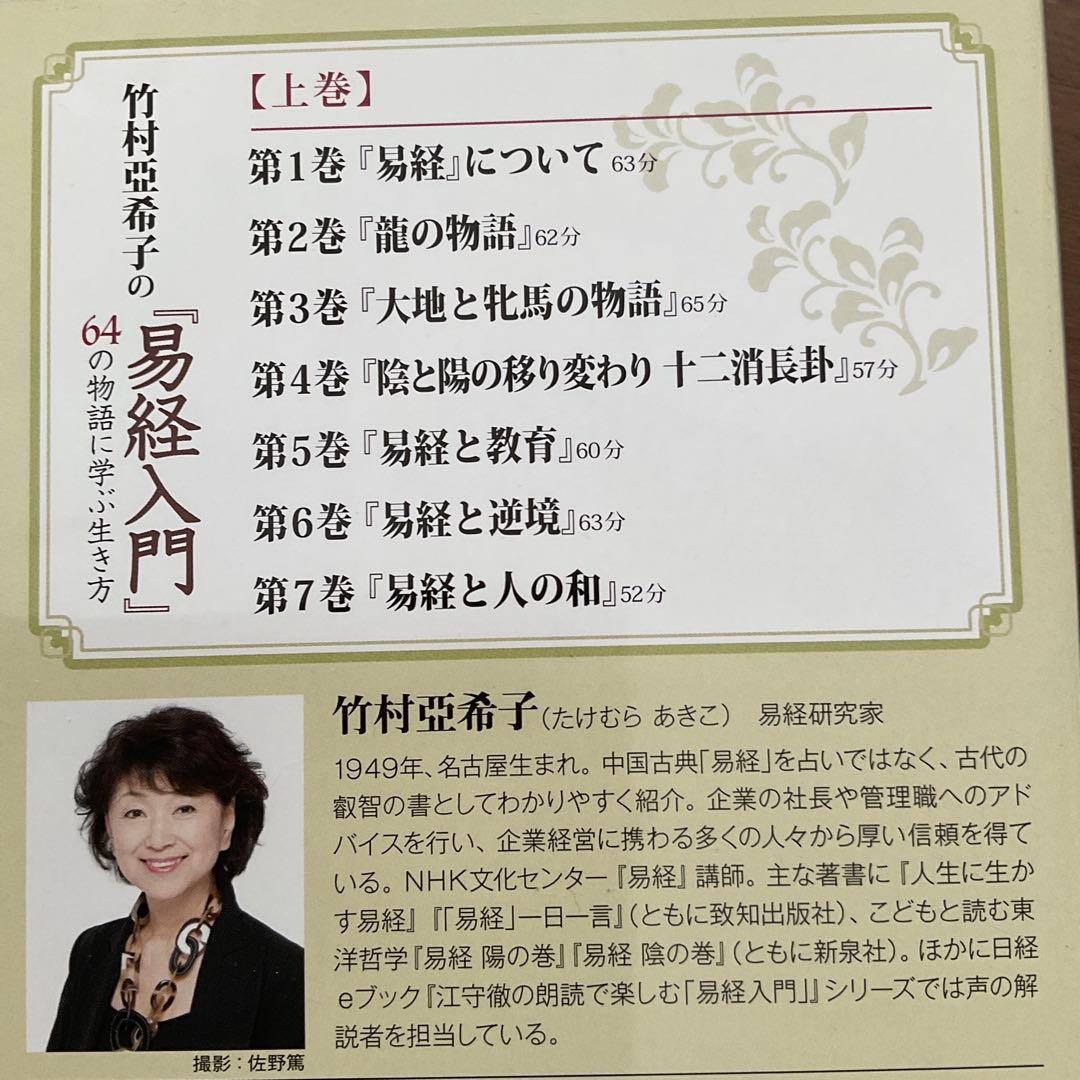 竹村亞希子の
『易経入門』
64の物語に学ぶ生き方
【上巻】
第1巻『易経』について 63分
第2巻『龍の物語』62分
第3巻『大地と牝馬の物語』65分
第4巻『陰と陽の移り変わり 十二消長卦』57分
第5巻『易経と教育』60分
第6巻『易経と逆境』63分
第7巻『易経と人の和』52分
竹村亞希子(たけむら あきこ) 易経研究家
1949年、名古屋生まれ。中国古典「易経」を占いではなく、古代の
叡智の書としてわかりやすく紹介。企業の社長や管理職へのアド
バイスを行い、企業経営に携わる多くの人々から厚い信頼を得て
いる。NHK文化センター『易経』講師。主な著書に『人生に生か
す易経』『「易経」一日一言』(ともに致知出版社)、こどもと読む東
洋哲学『易経 陽の巻』『易経 陰の巻』(ともに新泉社)。ほかに日経
eブック『江守徹の朗読で楽しむ「易経入門」』シリーズでは声の解
説者を担当している。
撮影:佐野篤